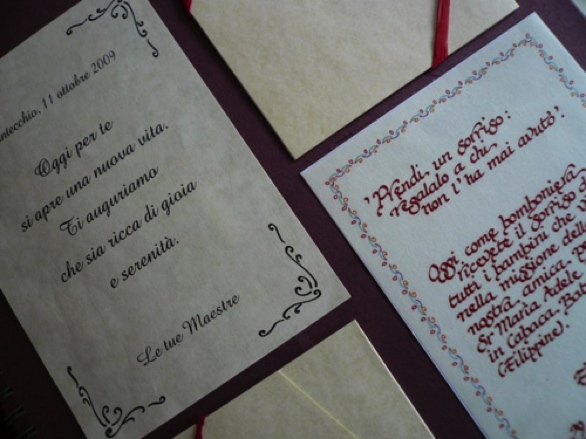 ntecchio, 11 ottobre 2009
Oggi per te
si apre una nuova vita.
Ti auguriamo
che sia ricca di gioia
e serenità.
Le tue Maestre
"Prendi un sorriso:
regalalo a chi
non l'ha mai avuto".
Oggi come bomboniera
ricevete il sorriso
tutti i bambini che
nella missione della
nostra amica,
Sr Maria Adele
in Cabaca,
(Filippine)